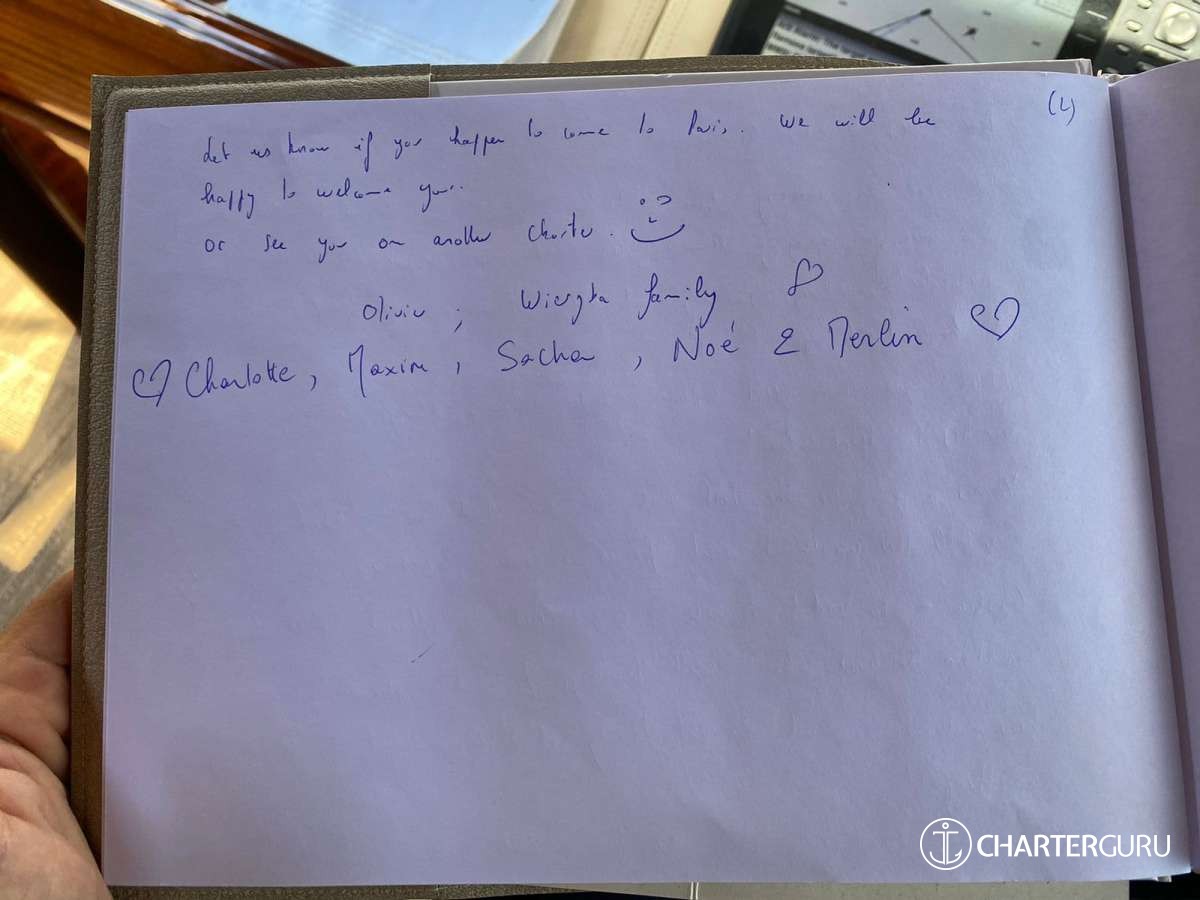 (2)
Let us know if you happen to come to Paris. We will be
happy to welcome you.
or see you on another charter.
Olivier ; family
Charlotte, Maxim, Sacha, Noé & Merlin
CHARTERGURU